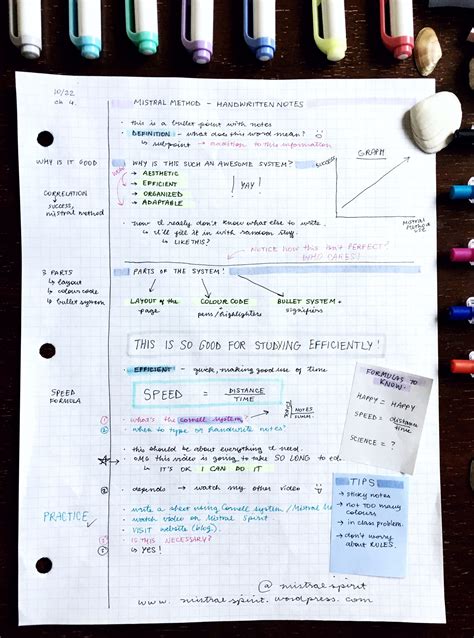 10/22
ch 4.
MISTRAL METHOD - HANDWRITTEN NOTES
• this is a bullet point with notes
• DEFINITION - what does this word mean?
↳ subpoint → addition to this information
WHY IS IT GOOD
CORRELATION
↳ success,
mistral method
WHY IS THIS SUCH AN AWESOME SYSTEM?
→ AESTHETIC
→ EFFICIENT
→ ORGANIZED
→ ADAPTABLE
! YAY!
GRAPH
SUCCESS
Mistral
Method
use
• now I really don't know what else to write.
↳ I'll fill it in with random stuff.
↳ LIKE THIS?
NOTICE HOW this isn't PERFECT?
WHO CARES?
3 PARTS
↳ layout
↳ colour code
↳ bullet system
PARTS OF THE SYSTEM!
LAYOUT of the
page
COLOUR CODE
pens/highlighters
BULLET SYSTEM
signifiers
THIS IS SO GOOD FOR STUDYING EFFICIENTLY!
• EFFICIENT - quick, making good use of time
SPEED
FORMULA
SPEED = DISTANCE
TIME
• what's the cornell system,
NOTES
SUMM.
• when to type or handwrite notes?
• this should be about everything I need.
• OMG this video is going to take SO LONG to ed
↳ IT'S OK I CAN DO IT
• depends → watch my other video
PRACTICE ✓
• write a sheet using Cornell system / Mistral M
• watch video on Mistral Spirit
• VISIT website (blog).
• IS THIS NECESSARY?
↳ YES!
FORMULAS TO
KNOW:
HAPPY = HAPPY
SPEED = distance
time
SCIENCE = ?
TIPS
→ sticky notes
→ not too many
colours
→ in class problem.
→ don't worry
about RULES.
@ mistralspirit
www.mistralspirit.wordpress.com